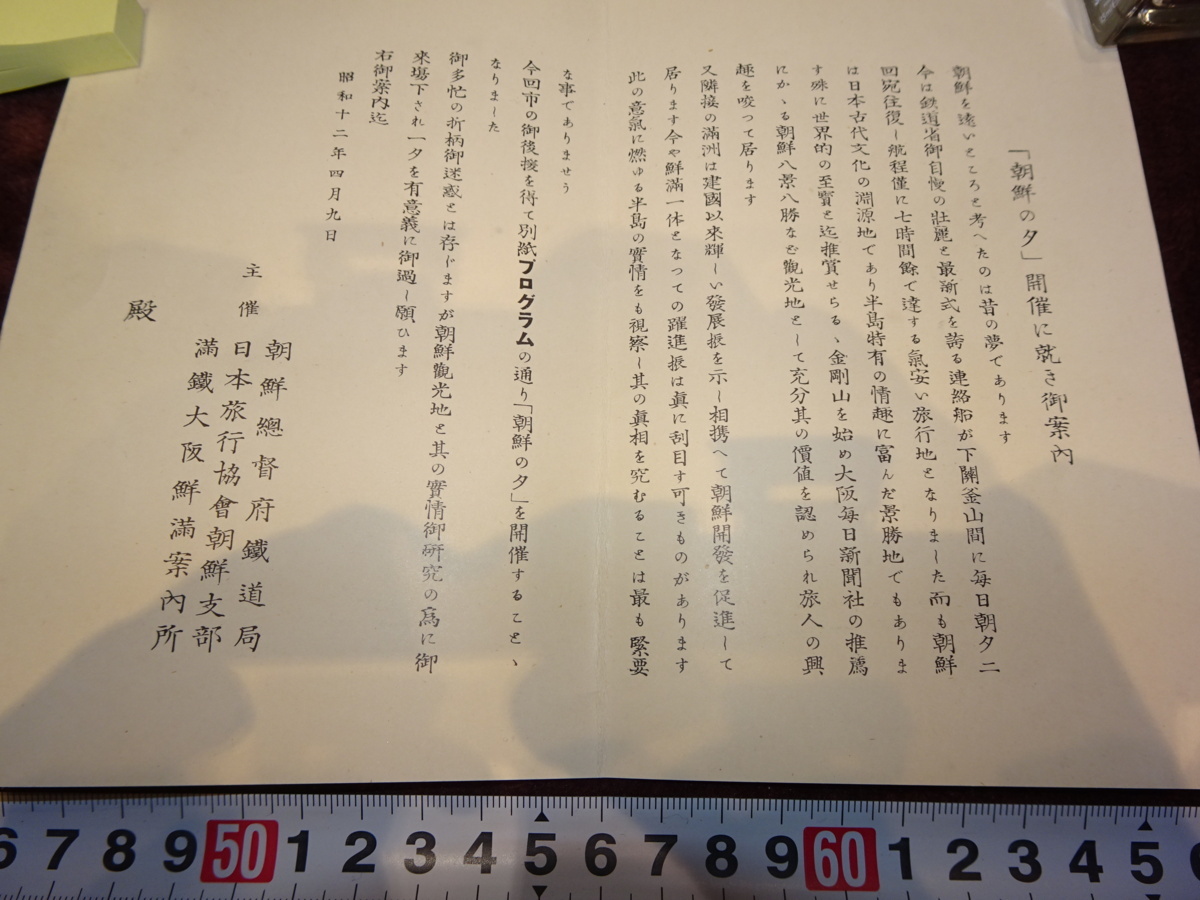 「朝鮮の夕」開催に就き御案内
朝鮮を遠いところと考へたのは昔の夢であります
今は鉄道省御自慢の壯麗と最新式を誇る連絡船が下關釜山間に毎日朝夕二
回宛往復し航程僅に七時間餘で達する氣安い旅行地となりました而も朝鮮
は日本古代文化の淵源地であり半島特有の情趣に富んだ景勝地でもありま
す殊に世界的の至寶と迄推賞せらるゝ金剛山を始め大阪毎日新聞社の推薦
にかゝる朝鮮八景八勝など觀光地として充分其の價値を認められ旅人の興
趣を咬つて居ります
又隣接の滿洲は建國以來輝しい發展振を示し相携へて朝鮮開發を促進して
居ります今や鮮滿一体となつての躍進振は眞に刮目す可きものがあります
此の意氣に燃ゆる半島の實情をも視察し其の眞相を究むることは最も緊要
な事でありませう
今回市の御後援を得て別紙プログラムの通り「朝鮮の夕」を開催することゝ
なりました
御多忙の折柄御迷惑とは存じますが朝鮮觀光地と其の實情御研究の爲に御
來場下され一夕を有意義に御過し願ひます
右御案内迄
昭和十二年四月九日
主催
朝鮮總督府鐵道局
日本旅行協會朝鮮支部
滿鐵大阪鮮滿案內所
殿
6 7 8 9 50 1 2 3 4 5 6 7 8 9 60 1 2 3 4 5 6